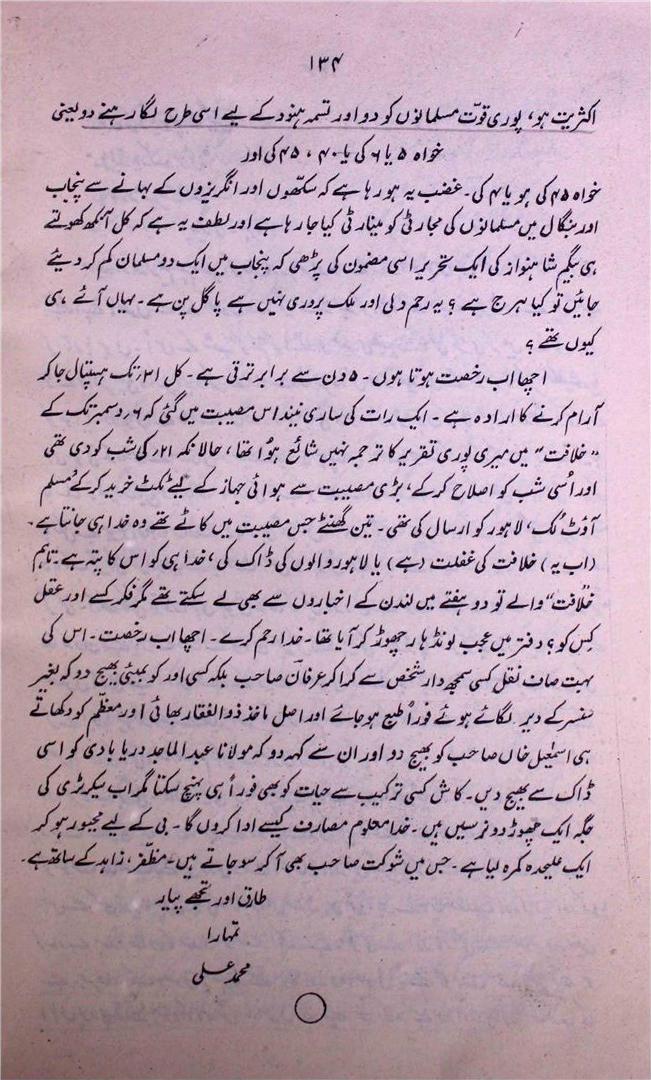 ۱۳۴
اکثریت ہو، پوری قوت مسلمانوں کو دو اور تسمہ ہنود کے لیے اسی طرح لگا رہنے دو یعنی
خواہ ۵ یا ۶ کی یا ۴۰، ۴۵ کی اور
خواہ ۴۵ کی ہو یا ۴ کی۔ غضب یہ ہو رہا ہے کہ سکھوں اور انگریزوں کے بہانے سے پنجاب
اور بنگال میں مسلمانوں کی مجارٹی کو مینارٹی کیا جا رہا ہے اور لطف یہ ہے کہ کل آنکھ کھولتے
ہی بیگم شاہنواز کی ایک تحریر اسی مضمون کی پڑھی کہ پنجاب میں ایک دو مسلمان کم کر دیئے
جائیں تو کیا ہرج ہے؟ یہ رحم دلی اور ملک پروری نہیں ہے پاگل پن ہے۔ یہاں آئے ہی
کیوں تھے؟
اچھا اب رخصت ہوتا ہوں۔ ۵ دن سے برابر ترقی ہے۔ کل ۳۱؍ تک ہسپتال جا کر
آرام کرنے کا ارادہ ہے۔ ایک رات کی ساری نیند اس مصیبت میں گئی کہ ۶؍ دسمبر تک کے
”خلافت“ میں میری پوری تقریر کا ترجمہ نہیں شائع ہوُا تھا، حالانکہ ۲۱؍ کی شب کو دی تھی
اور اُسی شب کو اصلاح کرکے، بڑی مصیبت سے ہوائی جہاز کے لیے ٹکٹ خرید کرکے ”مسلم
آؤٹ لُک، لاہور کو ارسال کی تھی۔ تین گھنٹے جس مصیبت میں کاٹے تھے وہ خدا ہی جانتا ہے۔
(اب یہ) خلافت کی غفلت (ہے) یا لاہور والوں کی ڈاک کی، خدا ہی کو اس کا پتہ ہے۔ تاہم
خلافت“ والے تو دو ہفتے میں لندن کے اخباروں سے بھی لے سکتے تھے مگر فکر کسے اور عقل
کِس کو؟ دفتر میں عجب لونڈھار چھوڑ کر آیا تھا۔ خدا رحم کرے۔ اچھا اب رخصت۔ اس کی
بہت صاف نقل کسی سمجھ دار شخص سے کرا کر عرفان صاحب بلکہ کسی اور کو بمبئی بھیج دو کہ بغیر
سنسر کے دیر لگائے ہوئے فوراً طبع ہو جائے اور اصل ماخذ ذوالفقار بھائی اور معظم کو دکھاتے
ہی اسمٰعیل خاں صاحب کو بھیج دو اور ان سے کہہ دو کہ مولانا عبد الماجد دریابادی کو اسی
ڈاک سے بھیج دیں۔ کاش کسی ترکیب سے حیات کو بھی فوراً ہی پہنچ سکتا مگر اب سیکریڑی کی
جگہ ایک چھوڑ دو نرسیں ہیں۔ خدا معلوم مصارف کیسے ادا کروں گا۔ بی کے لیے مجبور ہو کر
ایک علیحدہ کمرہ لیا ہے۔ جس میں شوکت صاحب بھی آ کر سو جاتے ہیں۔ مظفر، زاہد کے ساتھ ہے۔
طارق اور تجھے پیار
تمہارا
محمد علی